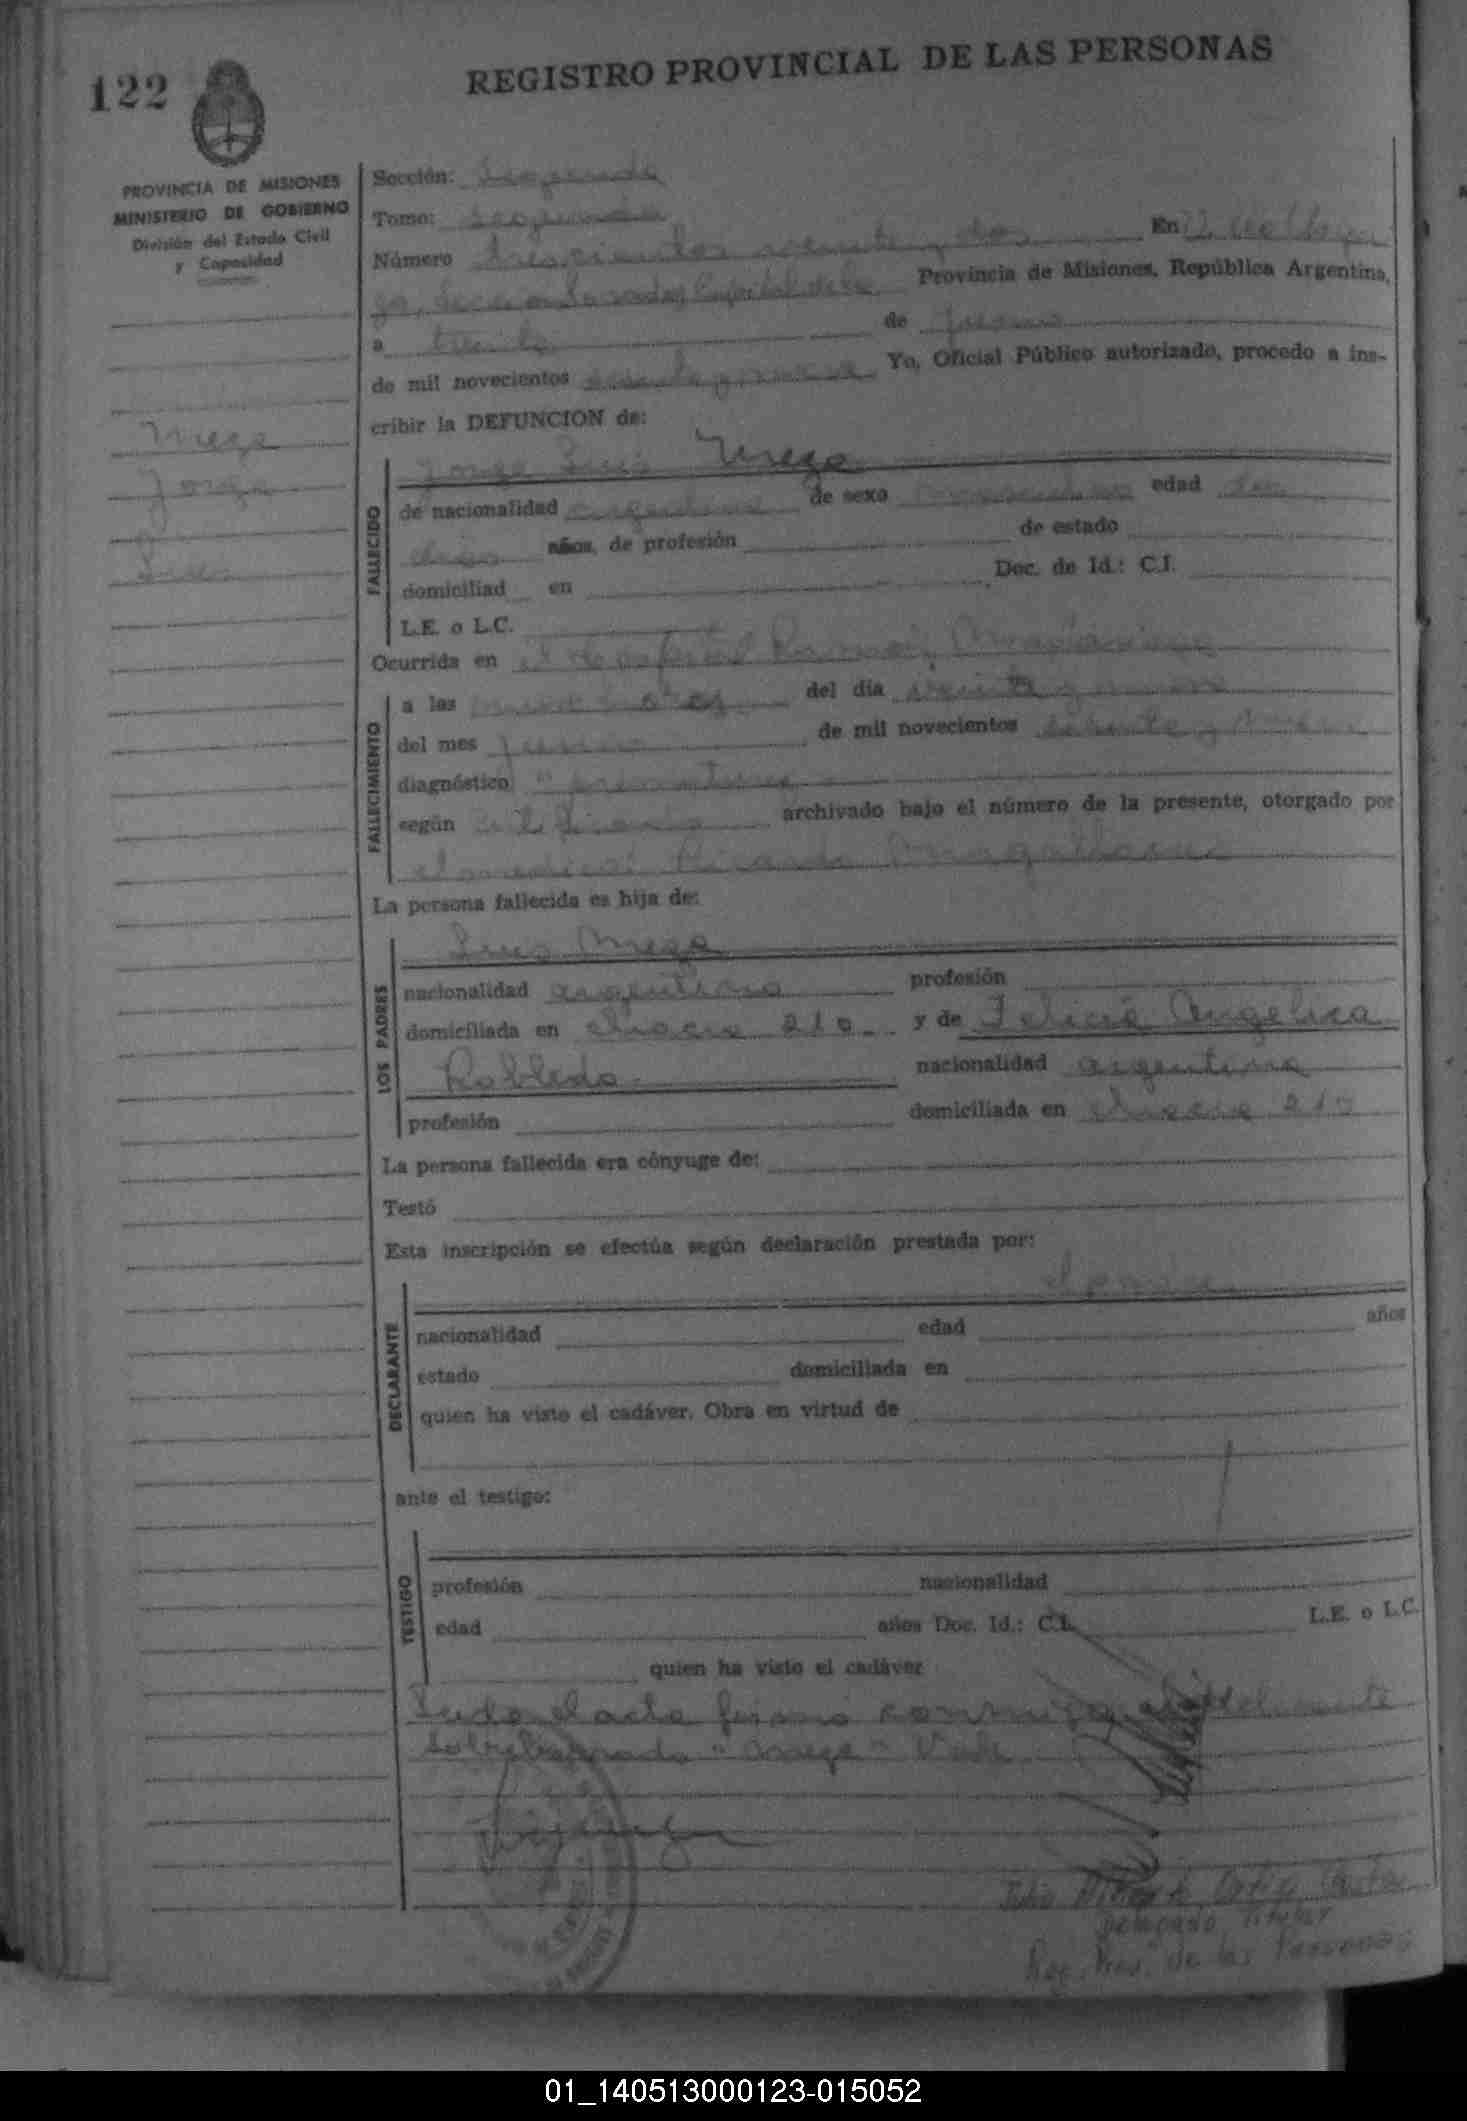 122
REGISTRO PROVINCIAL DE LAS PERSONAS
PROVINCIA DE MISIONES
MINISTERIO DE GOBIERNO
División del Estado Civil
y Capacidad
Sección: Segunda
Tomo: segundo
Número trescientos veinte y dos En
Capital de la Provincia de Misiones, República Argentina,
a treinta de junio
de mil novecientos sesenta y nueve Yo, Oficial Público autorizado, procedo a ins-
cribir la DEFUNCION de:
Meza
Jorge
Luis
FALLECIDO
Jorge Luis Meza
de nacionalidad argentina de sexo masculino edad dos
días años, de profesión de estado
domiciliad en Doc. de Id.: C.I.
L.E. o L.C.
Ocurrida en el Hospital Ramón Madariaga
FALLECIMIENTO
a las horas del día veinte y nueve
del mes junio de mil novecientos sesenta y nueve
diagnóstico "prematurez
según certificado archivado bajo el número de la presente, otorgado por
el medico: Ricardo
La persona fallecida es hija de:
LOS PADRES
Luis Meza
nacionalidad argentino profesión
domiciliada en chacra 210 y de Felicia Angelica
Robledo nacionalidad argentina
profesión domiciliada en chacra 210
La persona fallecida era cónyuge de:
Testó
Esta inscripción se efectúa según declaración prestada por:
DECLARANTE
el padre
nacionalidad edad años
estado domiciliada en
quien ha visto el cadáver. Obra en virtud de
ante el testigo:
TESTIGO
profesión nacionalidad
edad años Doc. Id.: C.I. L.E. o L.C.
quien ha visto el cadáver
Leida el acta firma conmigo el declarante
sobreborrado "Meza" Vale
Julio Ortiz
Delegado Titular
Reg. Prov. de las Personas
01_140513000123-015052